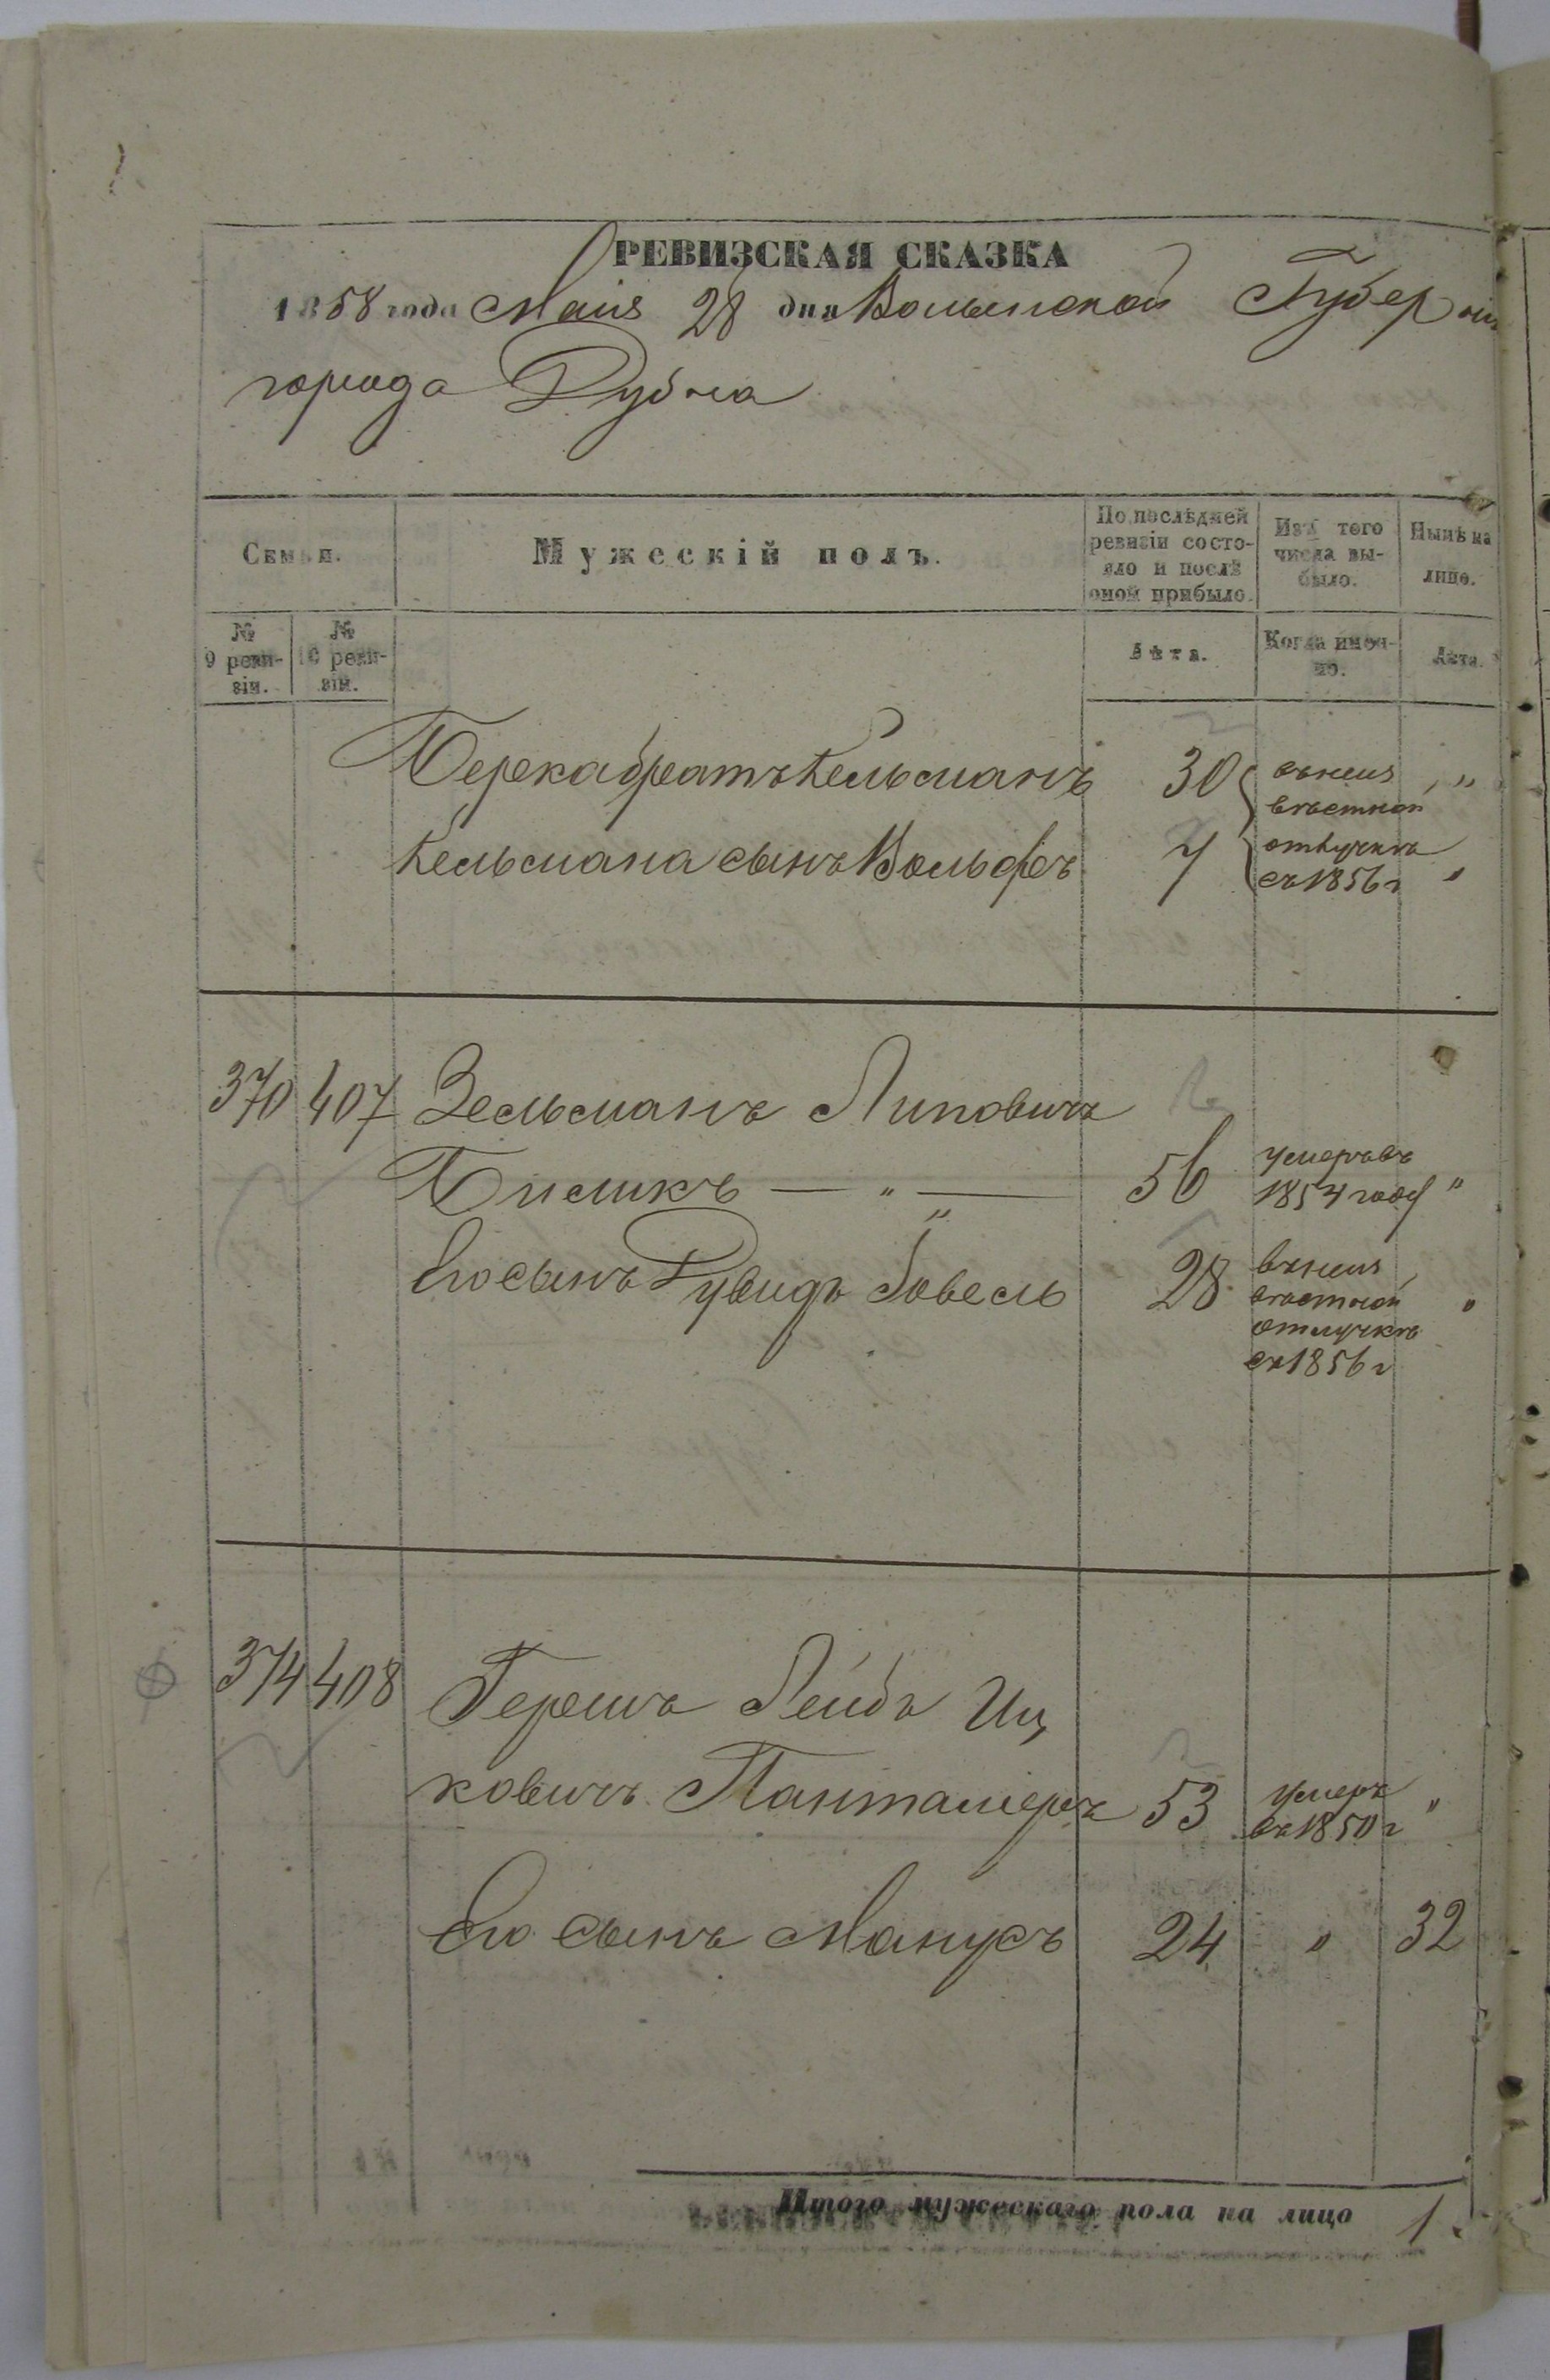 РЕВИЗСКАЯ СКАЗКА
1858 года Маія 28 дня Волынской Губерніи
города Дубна
Семьи.
Мужескій полъ.
По послѣдней ревизіи состояло и послѣ оной прибыло.
Изъ того числа выбыло.
Нынѣ на лицо.
№ 9 ревизіи.
№ 10 ревизіи.
Лѣта.
Когда именно.
Лѣта.
Берка братъ Кельманъ 30 "
Кельмана сынъ Вольфъ 7 "
въ неизвѣстной
отлучкѣ
съ 1856 г
370 407 Зельманъ Липовичъ
Бисликъ — " — 56 умеръ въ 1854 году "
Его сынъ Дувидъ Іовель 28 в неизвѣстной "
отлучкѣ
съ 1856 г
374 408 Гершъ Лейбъ Иц
ковичъ Панталиеръ 53 умеръ въ 1850 г "
Его сынъ Манусъ 24 " 32
Итого мужескаго пола на лицо 1.